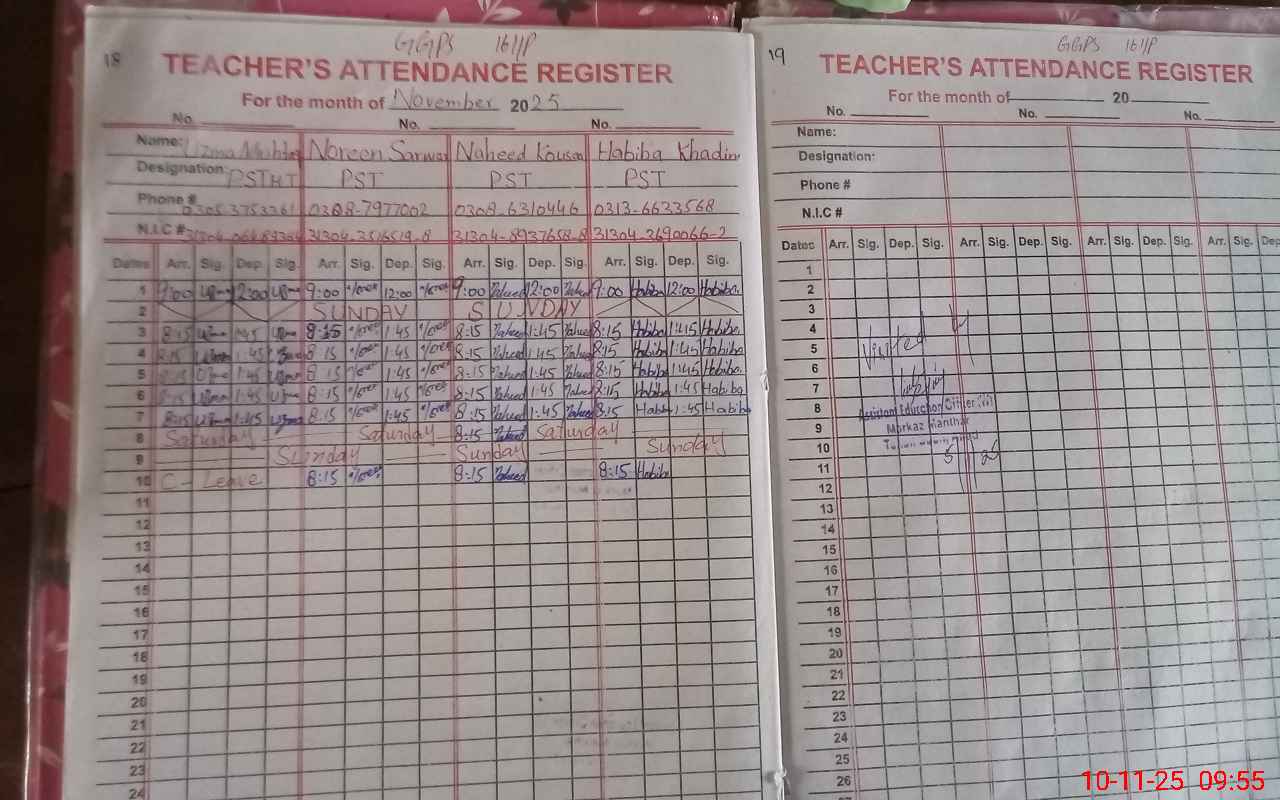 18
GGPS 161/P
TEACHER'S ATTENDANCE REGISTER
For the month of November 2025
No. No. No.
Name: Uzma Noreen Sarwar Naheed Kousar Habiba Khadim
Designation: PSTHT PST PST PST
Phone # 0305 3753261 0308-7977002 0308-6310446 0313-6633568
N.I.C # 31304 31304-3516519-8 31304-8937658-8 31304-2690066-2
Dates Arr. Sig. Dep. Sig. Arr. Sig. Dep. Sig. Arr. Sig. Dep. Sig. Arr. Sig. Dep. Sig.
1 9:00 Uzma 12:00 Uzma 9:00 12:00 9:00 Naheed 12:00 Naheed 9:00 Habiba 12:00 Habiba
2 SUNDAY SUNDAY
3 8:15 Uzma 1:45 Uzma 8:15 1:45 8:15 Naheed 1:45 Naheed 8:15 Habiba 1:45 Habiba
4 8:15 Uzma 1:45 Uzma 8:15 1:45 8:15 Naheed 1:45 Naheed 8:15 Habiba 1:45 Habiba
5 8:15 Uzma 1:45 Uzma 8:15 1:45 8:15 Naheed 1:45 Naheed 8:15 Habiba 1:45 Habiba
6 8:15 Uzma 1:45 Uzma 8:15 1:45 8:15 Naheed 1:45 Naheed 8:15 Habiba 1:45 Habiba
7 8:15 Uzma 1:45 Uzma 8:15 1:45 8:15 Naheed 1:45 Naheed 8:15 Habiba 1:45 Habiba
8 Saturday Saturday 8:15 Naheed Saturday
9 Sunday Sunday Sunday
10 C - Leave 8:15 8:15 Naheed 8:15 Habiba
11
12
13
14
15
16
17
18
19
20
21
22
23
24
19
GGPS 161/P
TEACHER'S ATTENDANCE REGISTER
For the month of 20
No. No. No.
Name:
Designation:
Phone #
N.I.C #
Dates Arr. Sig. Dep. Sig. Arr. Sig. Dep. Sig. Arr. Sig. Dep. Sig. Arr. Sig. Dep
1
2
3
4
5 Visited
6
7
8 Assistant Education Officer
9 Markaz Manthar
10
11
12
13
14
15
16
17
18
19
20
21
22
23
24
25
26
10-11-25 09:55